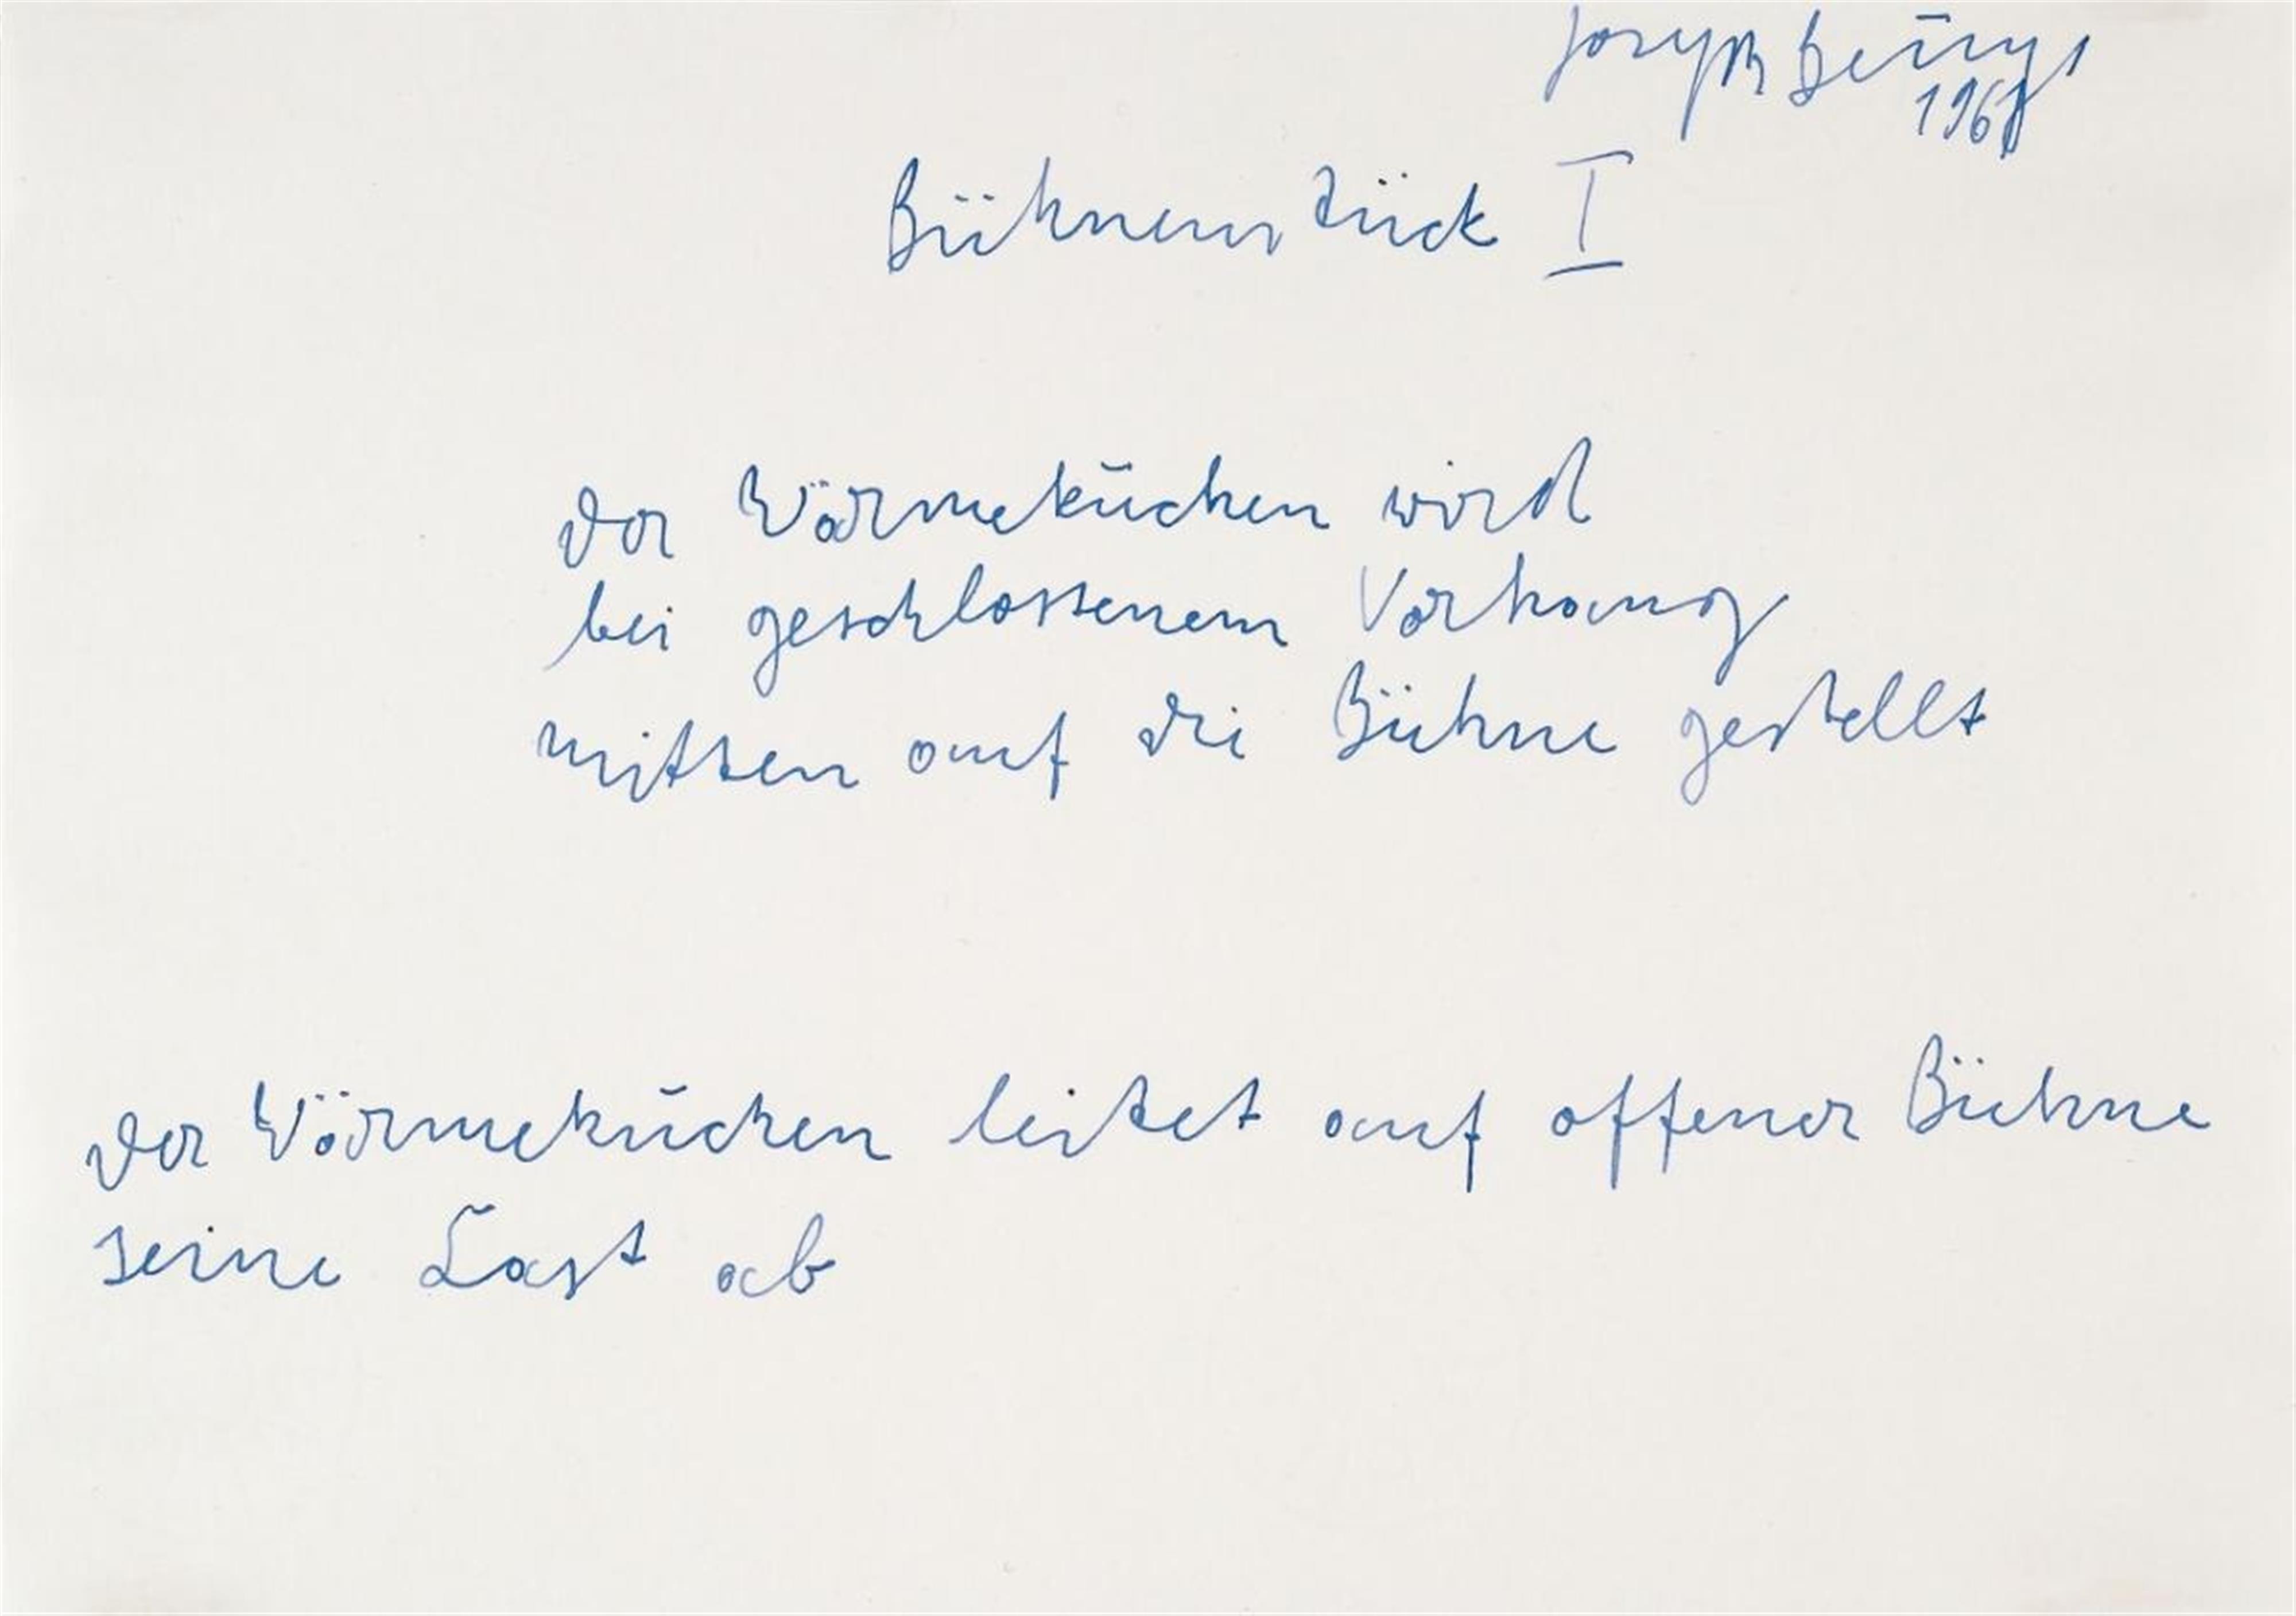 Joseph Beuys
Bühnenstück I
der Wärmekuchen wird
bei geschlossenem Vorhang
mitten auf die Bühne gestellt
der Wärmekuchen leitet auf offener Bühne
seine Last ab